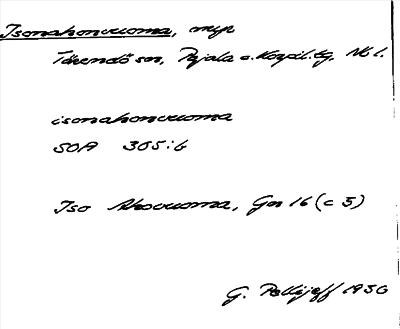 Isonahonvuoma, myr
Tärendö sn, Pajala o. Korpil. tg. Nb l.
isonahonvuoma
SOA 365:6
Iso Ahovuoma, Gn 16 (c 5)
G. Pellijeff 1956